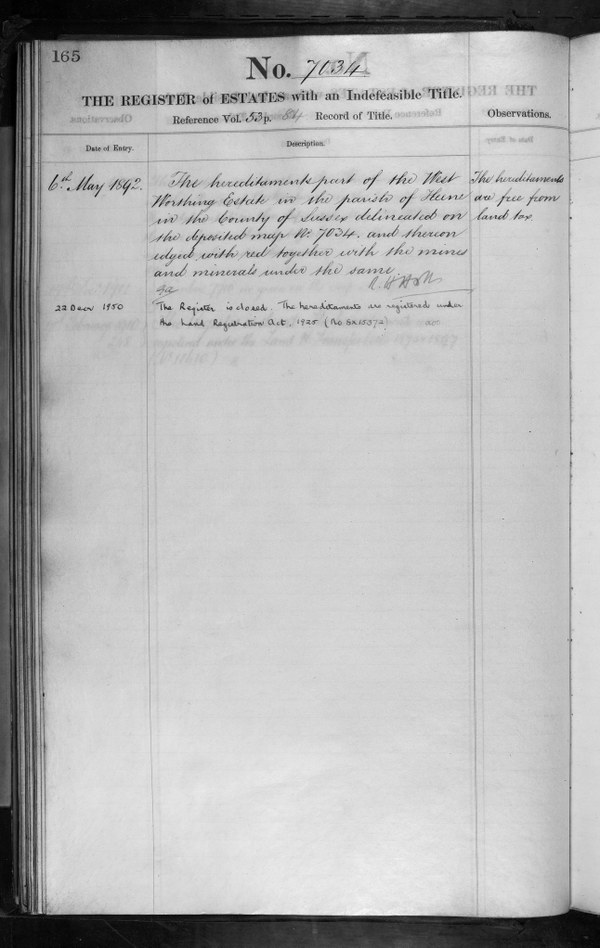 165
No. 7034
THE REGISTER of ESTATES with an Indefeasible Title.
Reference Vol. 53 p. 84 Record of Title.
Observations.
Date of Entry.
Description.
6th May 1892.
The hereditaments part of the West
Worthing Estate in the parish of Heene
in the County of Sussex delineated on
the deposited map No. 7034. and thereon
edged with red together with the mines
and minerals under the same
The hereditaments
are free from
land tax
22 Decr 1950
The Register is closed. The hereditaments are registered under
the Land Registration Act, 1925 (No SX15372)